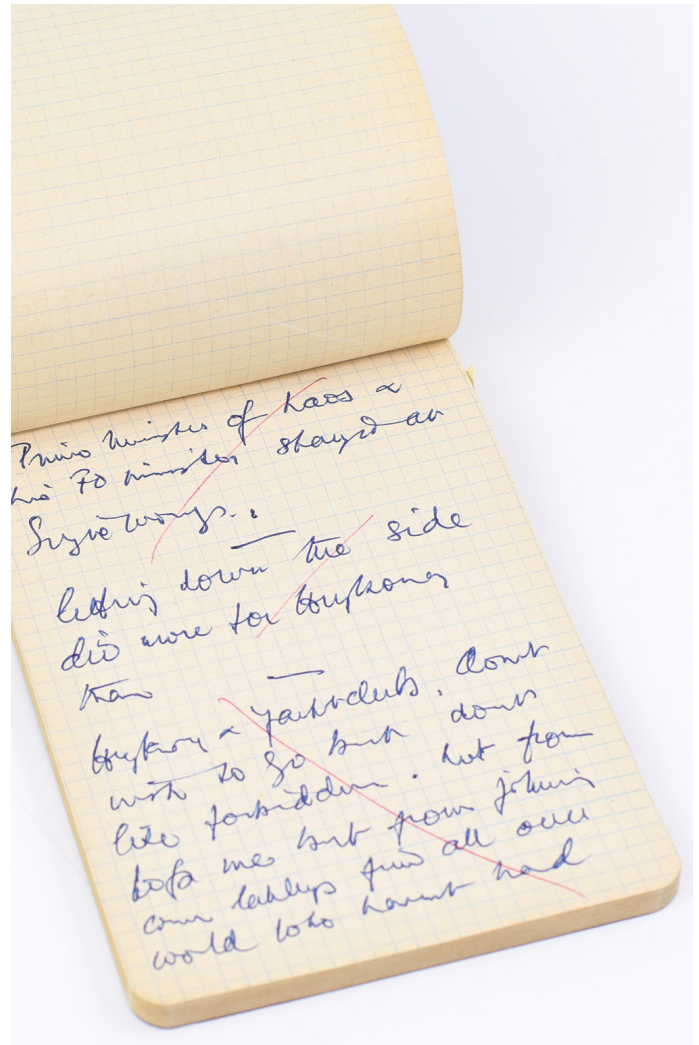 Prime Minister of Laos &
his FO minister stayed at
Suzie Wongs..
letting down the side
did more for Hongkong
than
Hongkong & yacht clubs. Don't
wish to go but don't
like forbidden. Not from
me but from
come all over
world who havent had